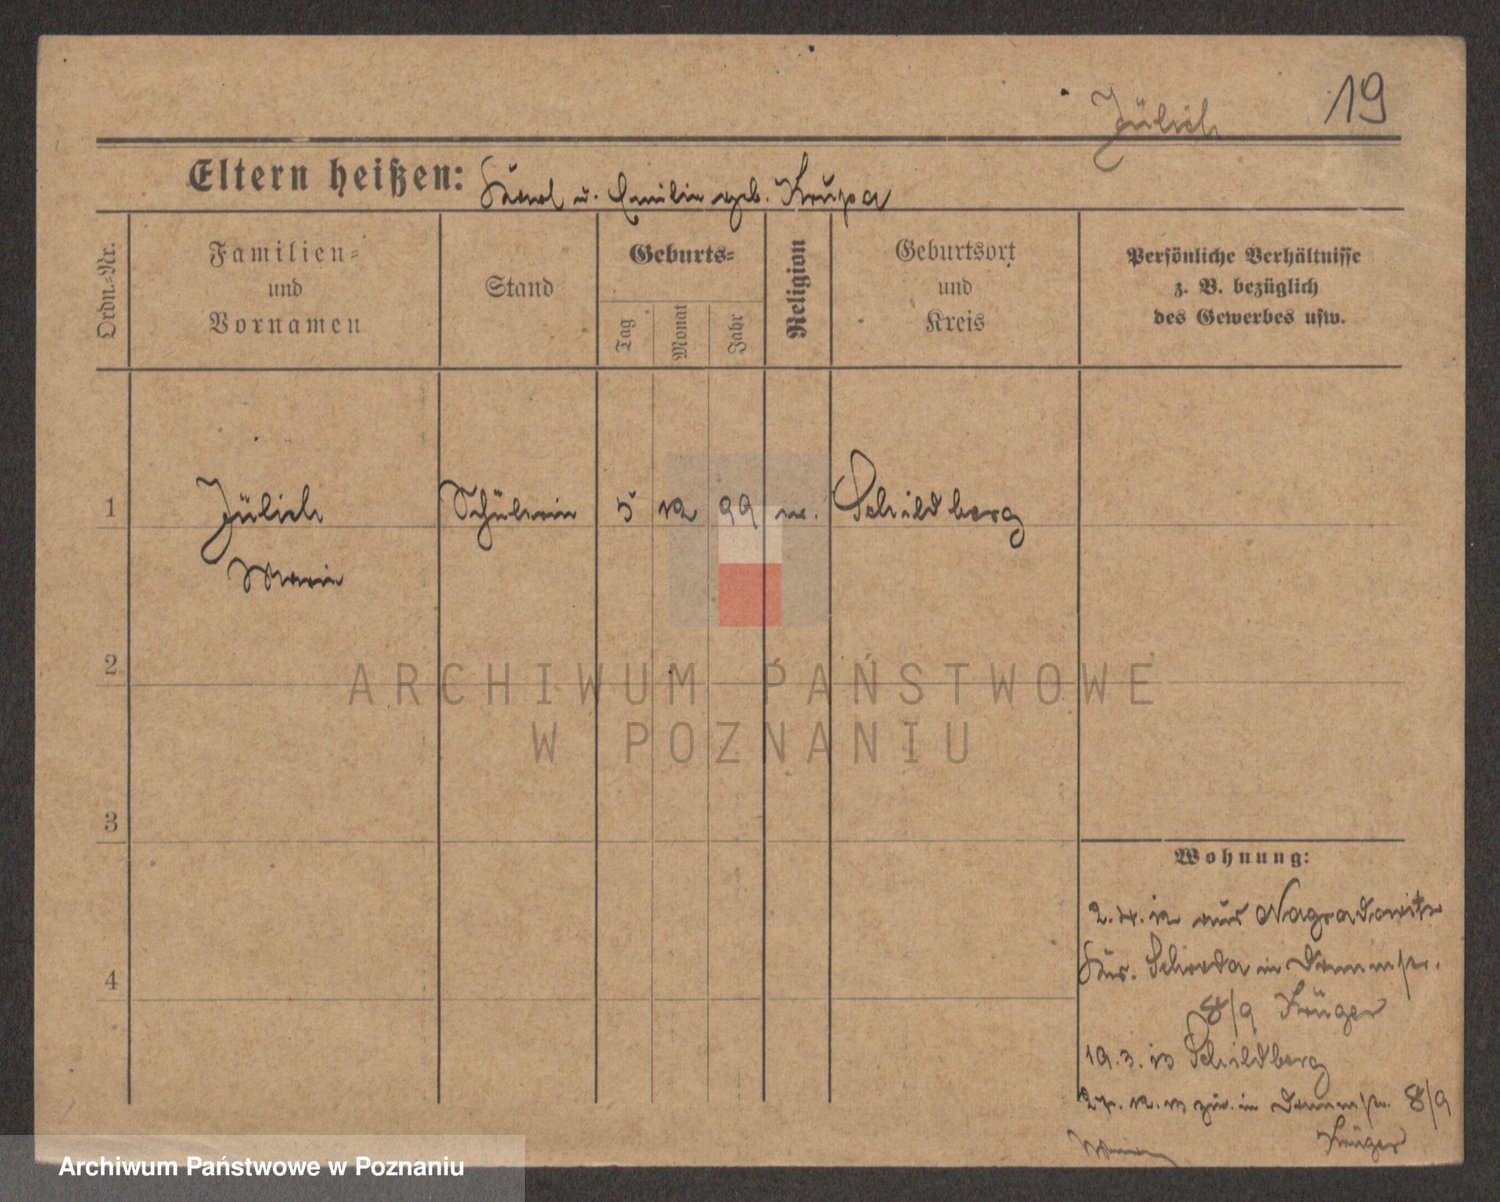 Jülich 19
Eltern heißen: Karl u. Emilie geb. Krupa
Ordn.-Nr.
Familien-
und
Vornamen
Stand
Geburts-
Tag
Monat
Jahr
Religion
Geburtsort
und
Kreis
Persönliche Verhältnisse
z. B. bezüglich
des Gewerbes usw.
1 Jülich Schülerin 5 12 99 ev. Schildberg
Marie
2
3
4
Wohnung:
2.4.12 aus Nagradowitz
Krs. Schroda in
8/9 Krüger
19.3.13 Schildberg
12.13 zur. in 8/9
Krüger
ARCHIWUM PAŃSTWOWE
W POZNANIU
Archiwum Państwowe w Poznaniu